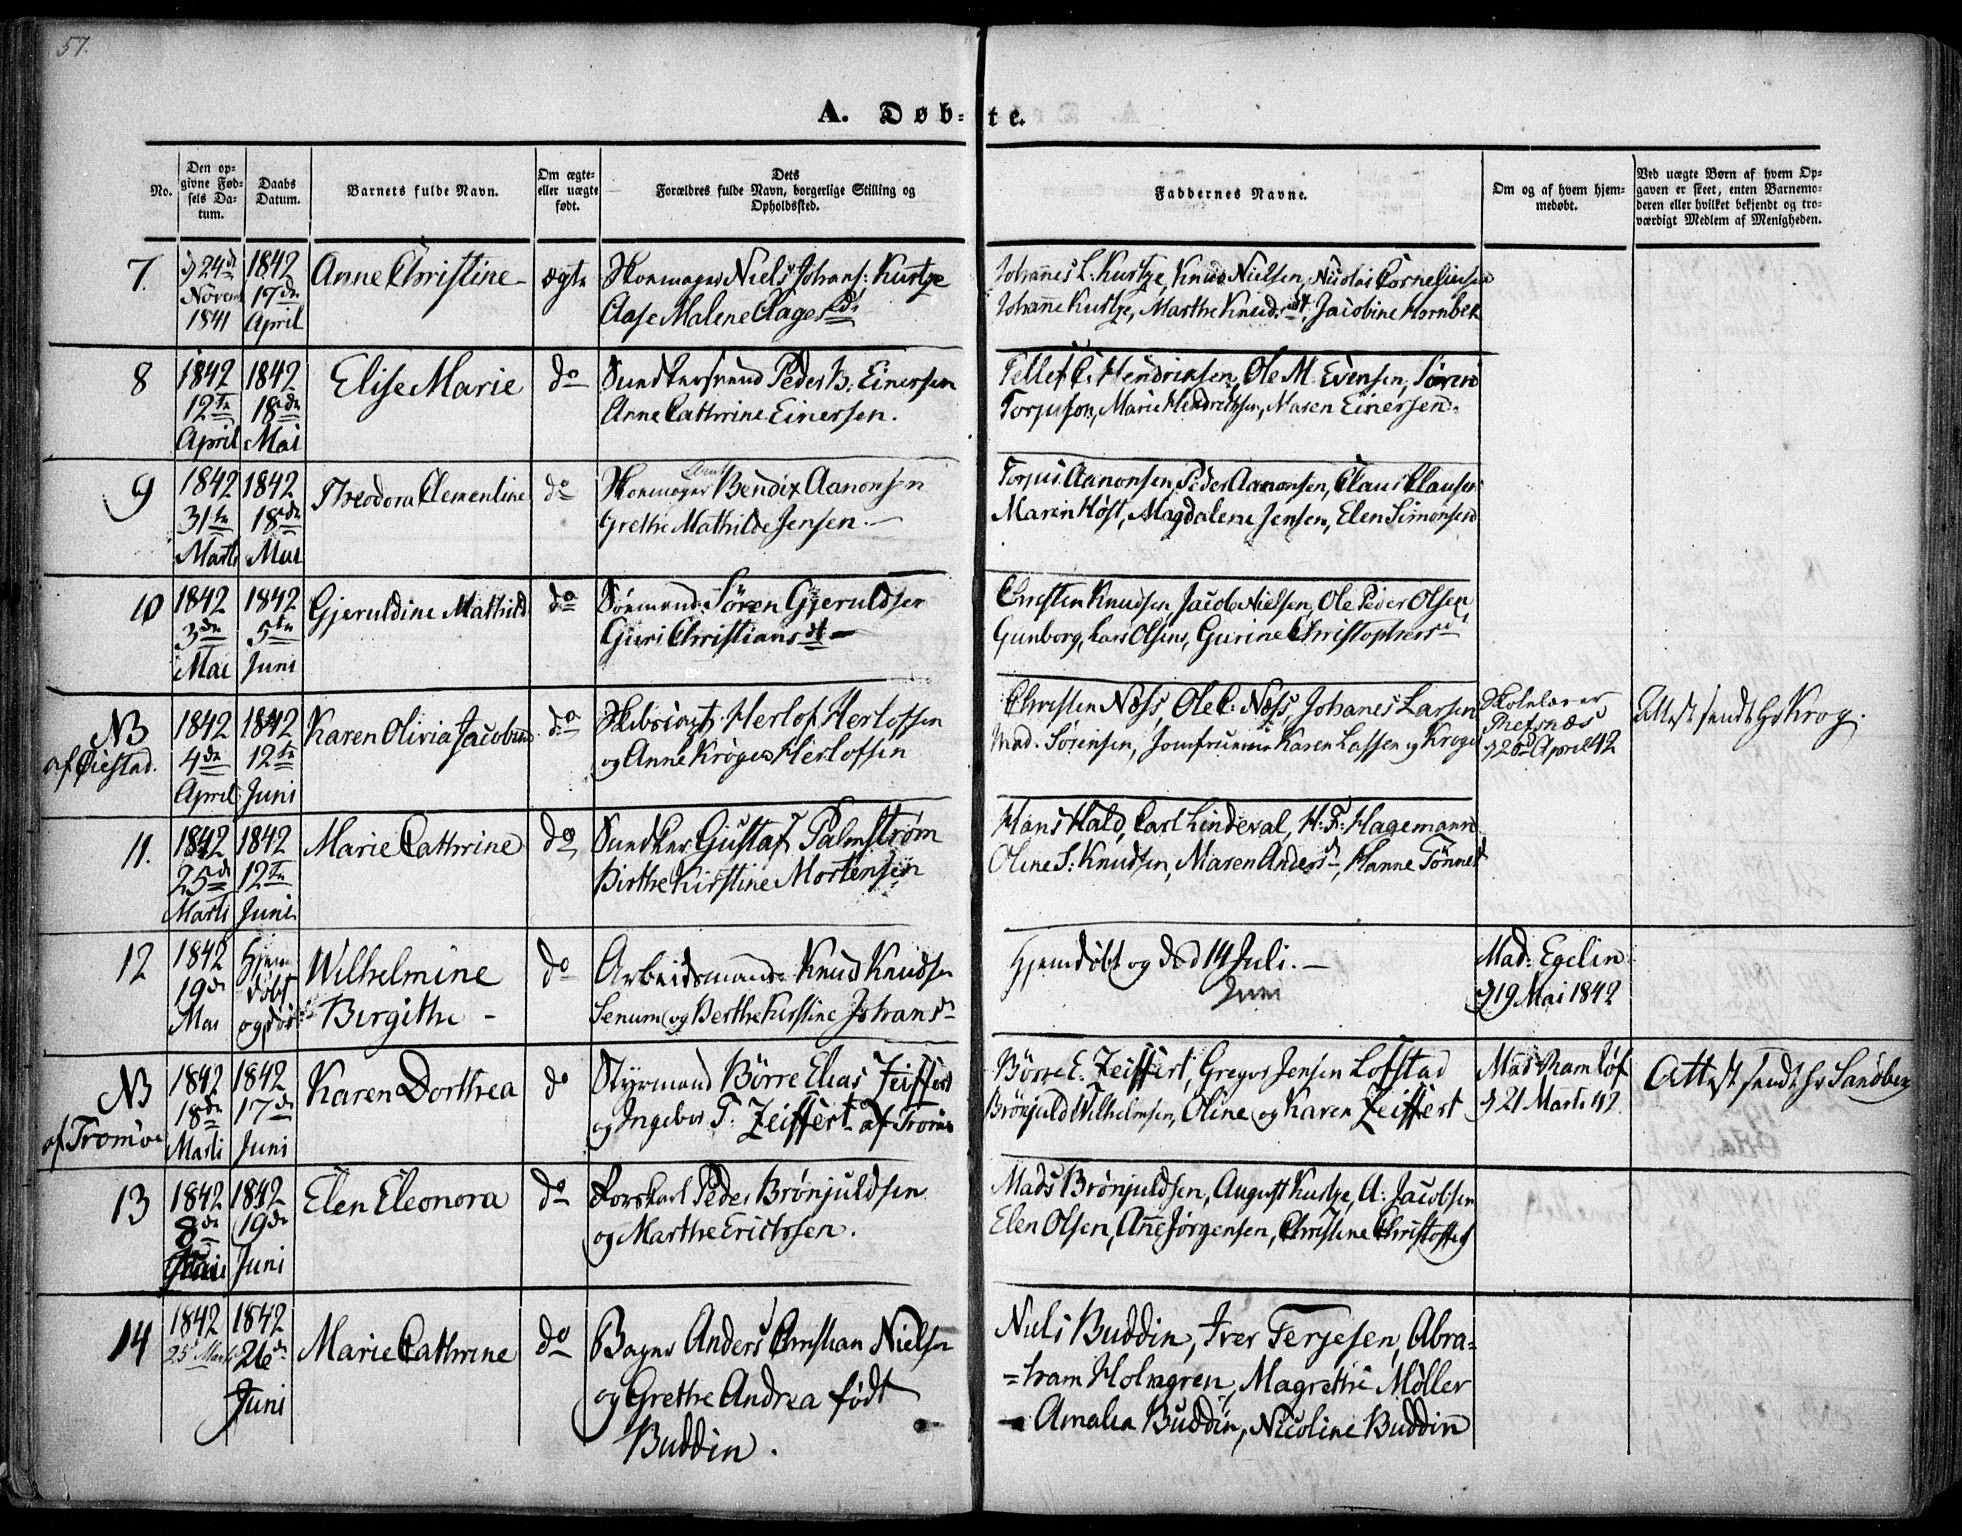 57.
A. Døb-te.
No.
Den opgivne Fødsels Datum.
Daabs Datum.
Barnets fulde Navn.
Om ægte- eller uægte født.
Dets Forældres fulde Navn, borgerlige Stilling og Opholdssted.
Faddernes Navne.
Om og af hvem hjemmedøbt.
Ved uægte Børn af hvem Opgaven er skeet, enten Barnemoderen eller hvilket bekjendt og troværdigt Medlem af Menigheden.
7. d 24de Novem 1841 1842 17de April Anne Christine ægte Skomager Niels Johans: Kurtze
Clase Malene Clagesdr
Johannes L. Kurtze, Knud Nielsen, Nicolai Corneliusen
Johanne Kurtze, Marthe Knudsdt, Jacobine Hornbek
8 1842 12te April 1842 18de Mai Elise Marie do Peder B. Einersen
Anne Cathrine Einersen.
Tellef C. Hendriksen, Ole M. Evensen, Sören
Torjusson, Marie Hendrichsen, Maren Einersen.
9 1842 31te Marti 1842 18de Mai Theodora Clementine do Skomager Bendix Aanonsen
Grethe Mathilde Jensen
Torjus Aanonsen, Peder Aanonsen, Claus Clausen
Maren Höst, Magdalene Jensen, Elen Simonsen
10 1842 3de Mai 1842 5te Juni Gjeruldine Mathild do Sömand Sören Gjeruldsen
Guri Christiansdt
Christen Knudsen, Jacob Nielsen, Ole Peder Olsen
Gunborg Lars Olsens, Gurine Christophersdt
NB
af Öiestad. 1842 4de April 1842 12te Juni Karen Olivia Jacobine do Herlof Herlofsen
og Anne Kröger Herlofsen
Christen Næss, Ole C. Næss, Johanes Larsen
Mad. Sörensen, Jomfruerne Karen Lassen og Kroger
Skolelærer
Thefsnæs
d 26 April 42
Attest sendt Hr Krog.
11. 1842 25de Marti 1842 12te Juni Marie Cathrine do Gustaf Palmström
Birthe Kirstine Mortensen
Hans Hald, Carl Linderal, H. F. Hagemann
Oline S. Knudsen, Maren Andersd, Hanne Tönnesd
12 1842 19de Mai Hjemdöbt og död Wilhelmine
Birgithe do Arbeidsmand Knud Knudsen
Senum og Berthe Kirstine Johansdr
Hjemdöbt og död 14 Juli.
Juni
Mad. Egelin
d 19 Mai 1842
NB
af Tromöe 1842 18de Marti 1842 17de Juni Karen Dorthea do Styrmand Börre Elias Zeiffert
og Ingebor T. Zeiffert af Tromö
Börre E. Zeiffert, Gregers Jensen Lofstad
Brönjuld Wilhelmsen, Oline og Karen Zeiffert
Mad. Kramlöf
d 21 Marti 42
Attest sendt Hr Sandberg
13 1842 8de 1842 19de Juni Elen Eleonora do Peder Brönjuldsen
og Marthe Erichsen.
Mads Brönjuldsen, August Kurtze, A. Jacobsen
Elen Olsen, Anne Jörgensen, Christine Christoffersd
14 1842 25 Marti 1842 26de Juni Marie Cathrine do Bager Anders Christian Nielsen
og Grethe Andrea födt
Buddin.
Niels Buddin, Iver Terjesen, Abra-
=ham Holmgren, Magrethe Möller
Amalia Buddin, Nicoline Buddin